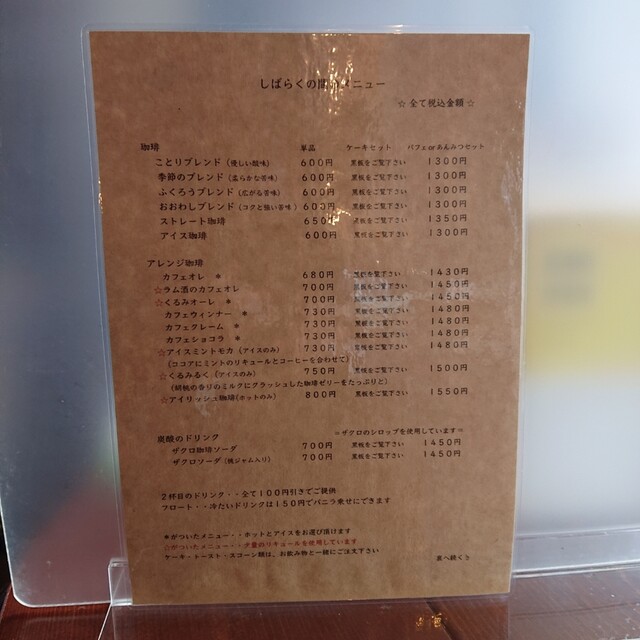 しばらくの間のメニュー
☆全て税込金額☆
珈琲 単品 ケーキセット パフェorあんみつセット
ことりブレンド（優しい酸味） 600円 黒板をご覧下さい 1300円
季節のブレンド（柔らかな苦味） 600円 黒板をご覧下さい 1300円
ふくろうブレンド（広がる苦味） 600円 黒板をご覧下さい 1300円
おおわしブレンド（コクと強い苦味） 600円 黒板をご覧下さい 1300円
ストレート珈琲 650円 黒板をご覧下さい 1350円
アイス珈琲 600円 黒板をご覧下さい 1300円
アレンジ珈琲
カフェオレ ＊ 680円 黒板をご覧下さい 1430円
☆ラム酒のカフェオレ 700円 黒板をご覧下さい 1450円
☆くるみオーレ ＊ 700円 黒板をご覧下さい 1450円
カフェウィンナー ＊ 730円 黒板をご覧下さい 1480円
カフェクレーム ＊ 730円 黒板をご覧下さい 1480円
カフェショコラ ＊ 730円 黒板をご覧下さい 1480円
☆アイスミントモカ（アイスのみ） 730円 黒板をご覧下さい 1480円
（ココアにミントのリキュールとコーヒーを合わせて）
☆くるみるく（アイスのみ） 750円 黒板をご覧下さい 1500円
（胡桃の香りのミルクにグラッシュした珈琲ゼリーをたっぷりと）
☆アイリッシュ珈琲（ホットのみ） 800円 黒板をご覧下さい 1550円
炭酸のドリンク ＝ザクロのシロップを使用しています＝
ザクロ珈琲ソーダ 700円 黒板をご覧下さい 1450円
ザクロソーダ（桃ジャム入り） 700円 黒板をご覧下さい 1450円
2杯目のドリンク・・全て100円引きでご提供
フロート・・冷たいドリンクは150円でバニラ乗せにできます
＊がついたメニュー・・ホットとアイスをお選び頂けます
☆がついたメニュー・・少量のリキュールを使用しています
ケーキ・トースト・スコーン類は、お飲み物と一緒にご注文下さい
裏へ続く